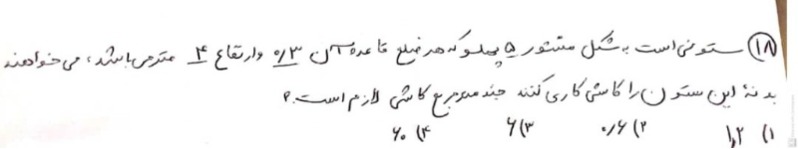 ۱۸) ستونی است به شکل منشور ۵ پهلو که هر ضلع قاعده آن ۰/۳ و ارتفاع ۴ متر می باشد، می خواهند
بدنهٔ این ستون را کاشی کاری کنند چند متر مربع کاشی لازم است؟
۱) ۱,۲ ۲) ۰/۶ ۳) ۶ ۴) ۶۰